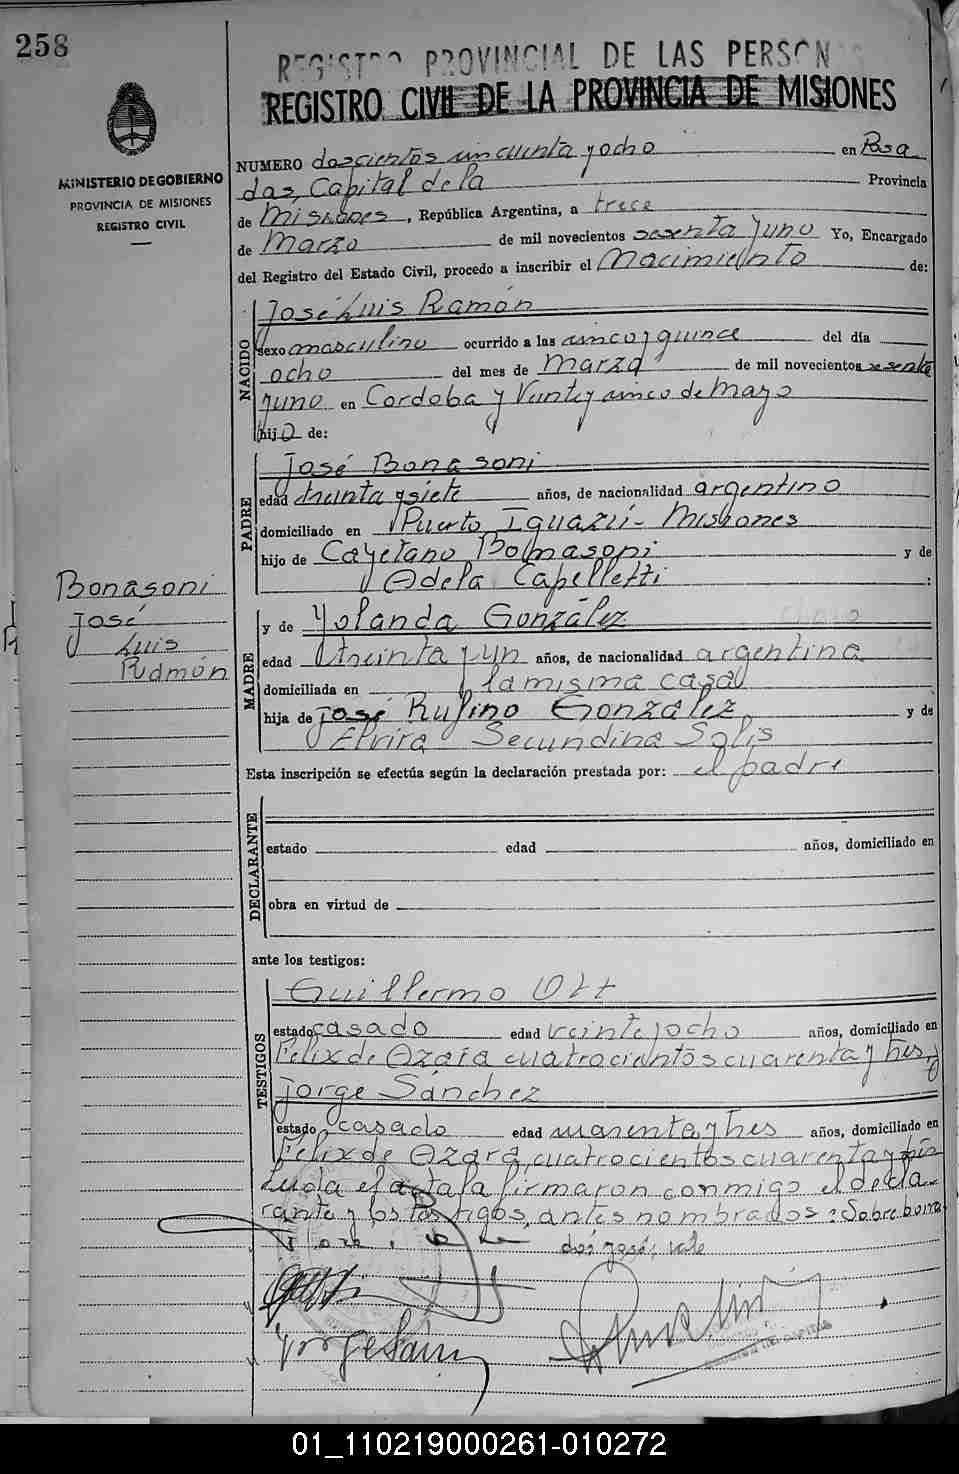 258
REGISTRO PROVINCIAL DE LAS PERSONAS
REGISTRO CIVIL DE LA PROVINCIA DE MISIONES
MINISTERIO DE GOBIERNO
PROVINCIA DE MISIONES
REGISTRO CIVIL
NUMERO doscientos cincuenta y ocho en Posa
das, Capital de la Provincia
de Misiones, República Argentina, a trece
de Marzo de mil novecientos sesenta y uno Yo, Encargado
del Registro del Estado Civil, procedo a inscribir el Nacimiento de:
NACIDO
José Luis Ramón
sexo masculino ocurrido a las cinco y quince del día
ocho del mes de Marzo de mil novecientos sesenta
y uno en Cordoba y Veinte y cinco de Mayo
hijo de:
PADRE
José Bonasoni
edad treinta y siete años, de nacionalidad argentino
domiciliado en Puerto Iguazú - Misiones
hijo de Cayetano Bonasoni y de
Adela Capelletti :
Bonasoni
José
Luis
Ramón
MADRE
y de Yolanda González
edad treinta y un años, de nacionalidad argentina
domiciliada en la misma casa
hija de José Rufino González y de
Elvira Secundina Solis
Esta inscripción se efectúa según la declaración prestada por: el padre
DECLARANTE
estado edad años, domiciliado en
obra en virtud de
ante los testigos:
TESTIGOS
Guillermo Ott
estado casado edad veinte y ocho años, domiciliado en
Felix de Azara cuatrocientos cuarenta y tres, y
Jorge Sánchez
estado casado edad cuarenta y tres años, domiciliado en
Félix de Azara, cuatrocientos cuarenta y
Leida el acta la firmaron conmigo el decla-
rante y los testigos, antes nombrados: Sobre borra
dos: José; vale
Jorge
01_110219000261-010272